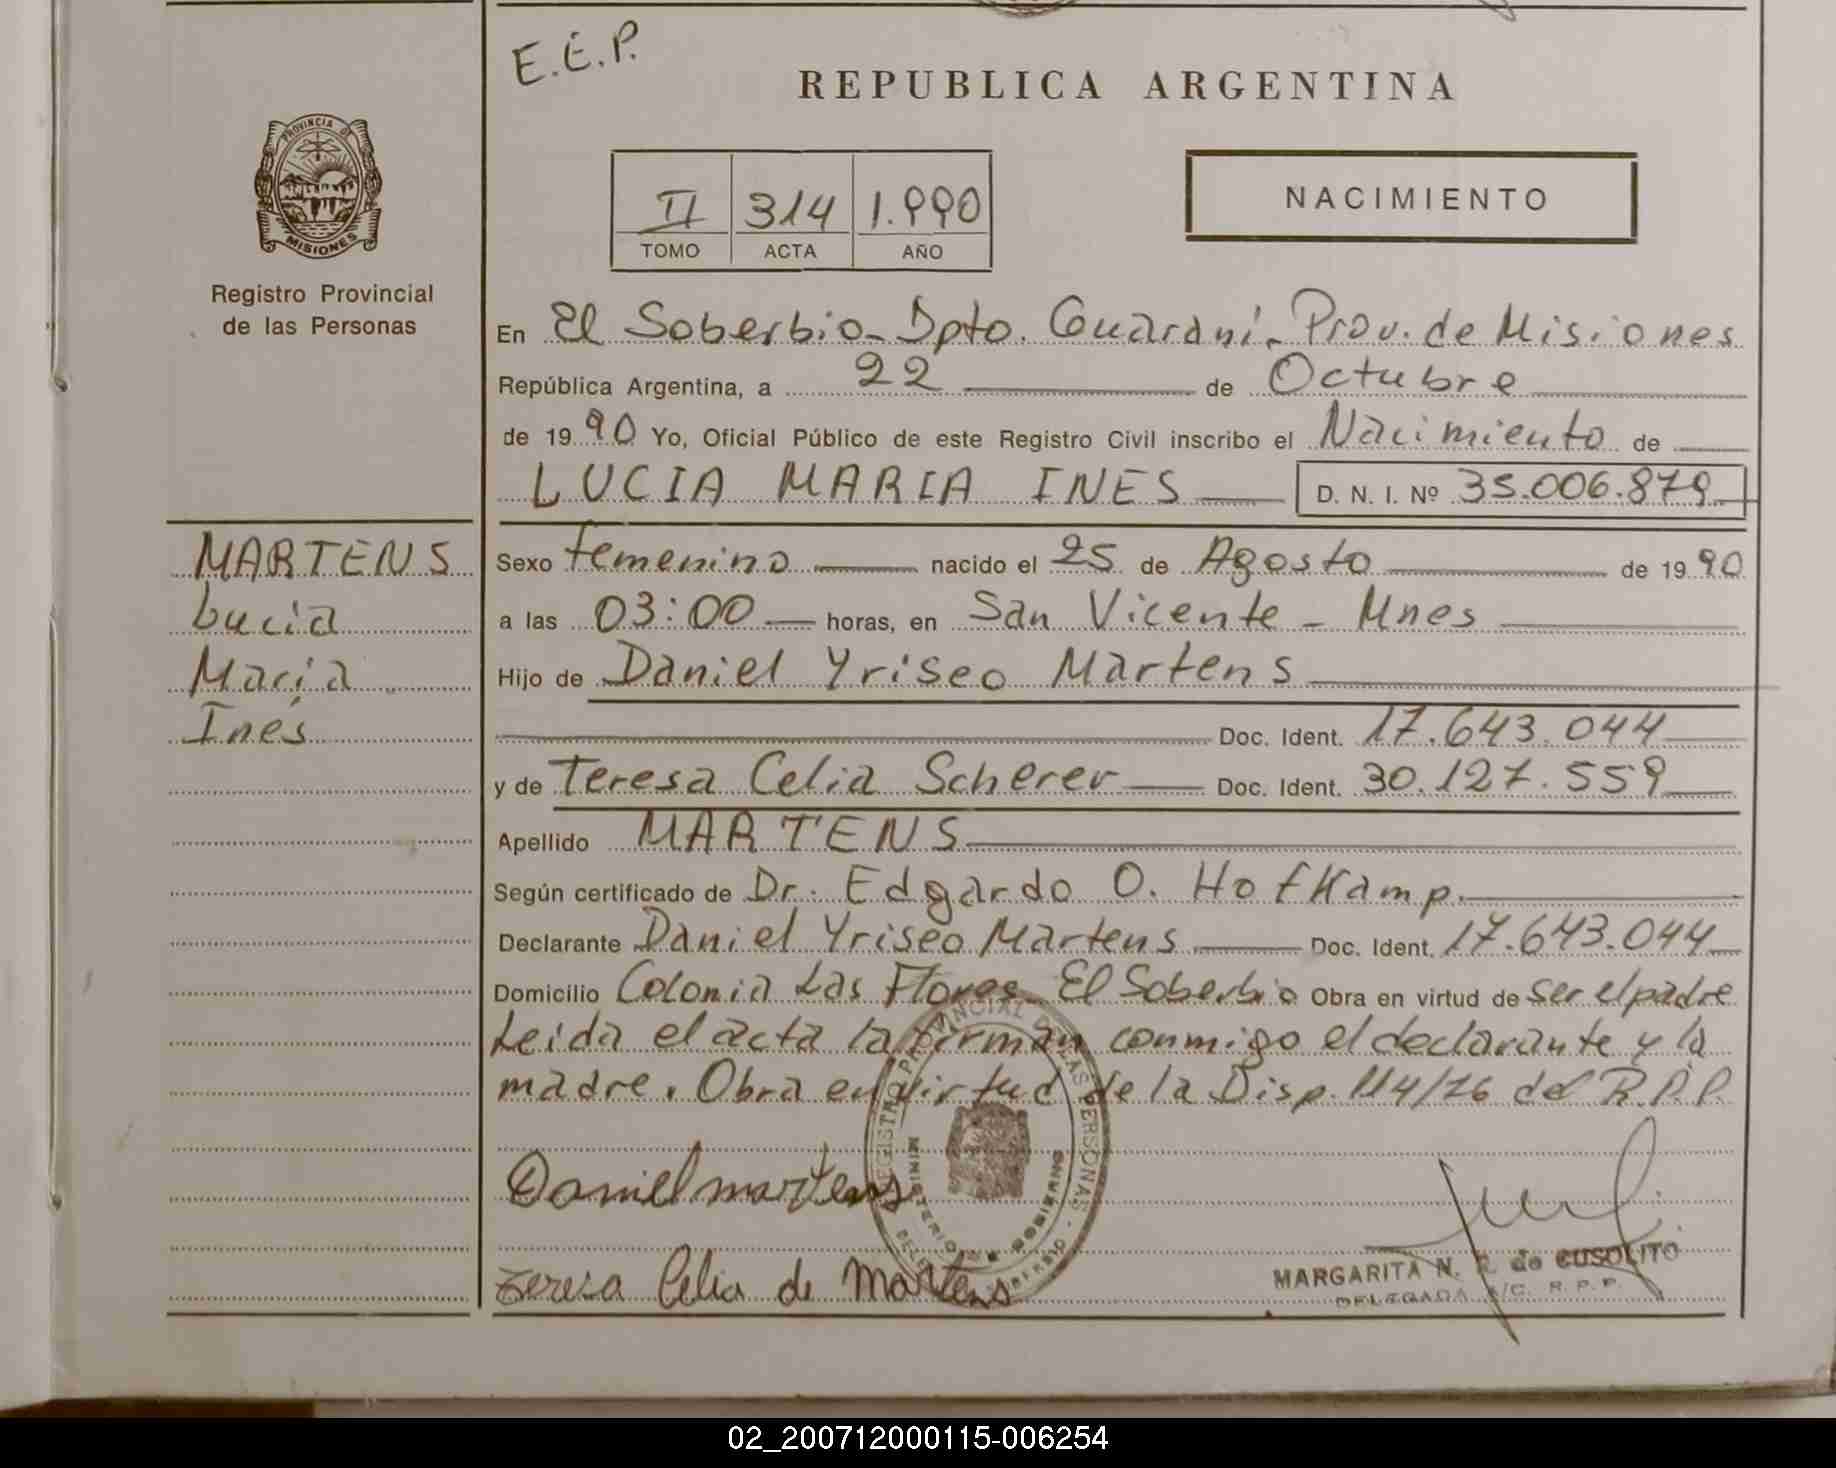 E.E.P.
REPUBLICA ARGENTINA
PROVINCIA DE
MISIONES
Registro Provincial
de las Personas
II 314 1.990
TOMO ACTA AÑO
NACIMIENTO
En El Soberbio - Dpto. Guaraní - Prov. de Misiones
República Argentina, a 22 de Octubre
de 1990 Yo, Oficial Público de este Registro Civil inscribo el Nacimiento de
LUCIA MARIA INES D. N. I. Nº 35.006.879
MARTENS
Lucia
María
Inés
Sexo femenino nacido el 25 de Agosto de 1990
a las 03:00 horas, en San Vicente - Mnes
Hijo de Daniel Yriseo Martens
Doc. Ident. 17.643.044
y de Teresa Celia Scherer Doc. Ident. 30.127.559
Apellido MARTENS
Según certificado de Dr. Edgardo O. Hofkamp.
Declarante Daniel Yriseo Martens Doc. Ident. 17.643.044
Domicilio Colonia Las Flores - El Soberbio Obra en virtud de ser el padre
Leida el acta la firman conmigo el declarante y la
madre. Obra en virtud de la Disp. 114/76 del R.P.P.
REGISTRO PROVINCIAL DE LAS PERSONAS
MINISTERIO DE GOBIERNO
Daniel martens
Teresa Celia de Martens
MARGARITA N. R. de CUSOLITO
DELEGADA A/C. R.P.P.
02_200712000115-006254